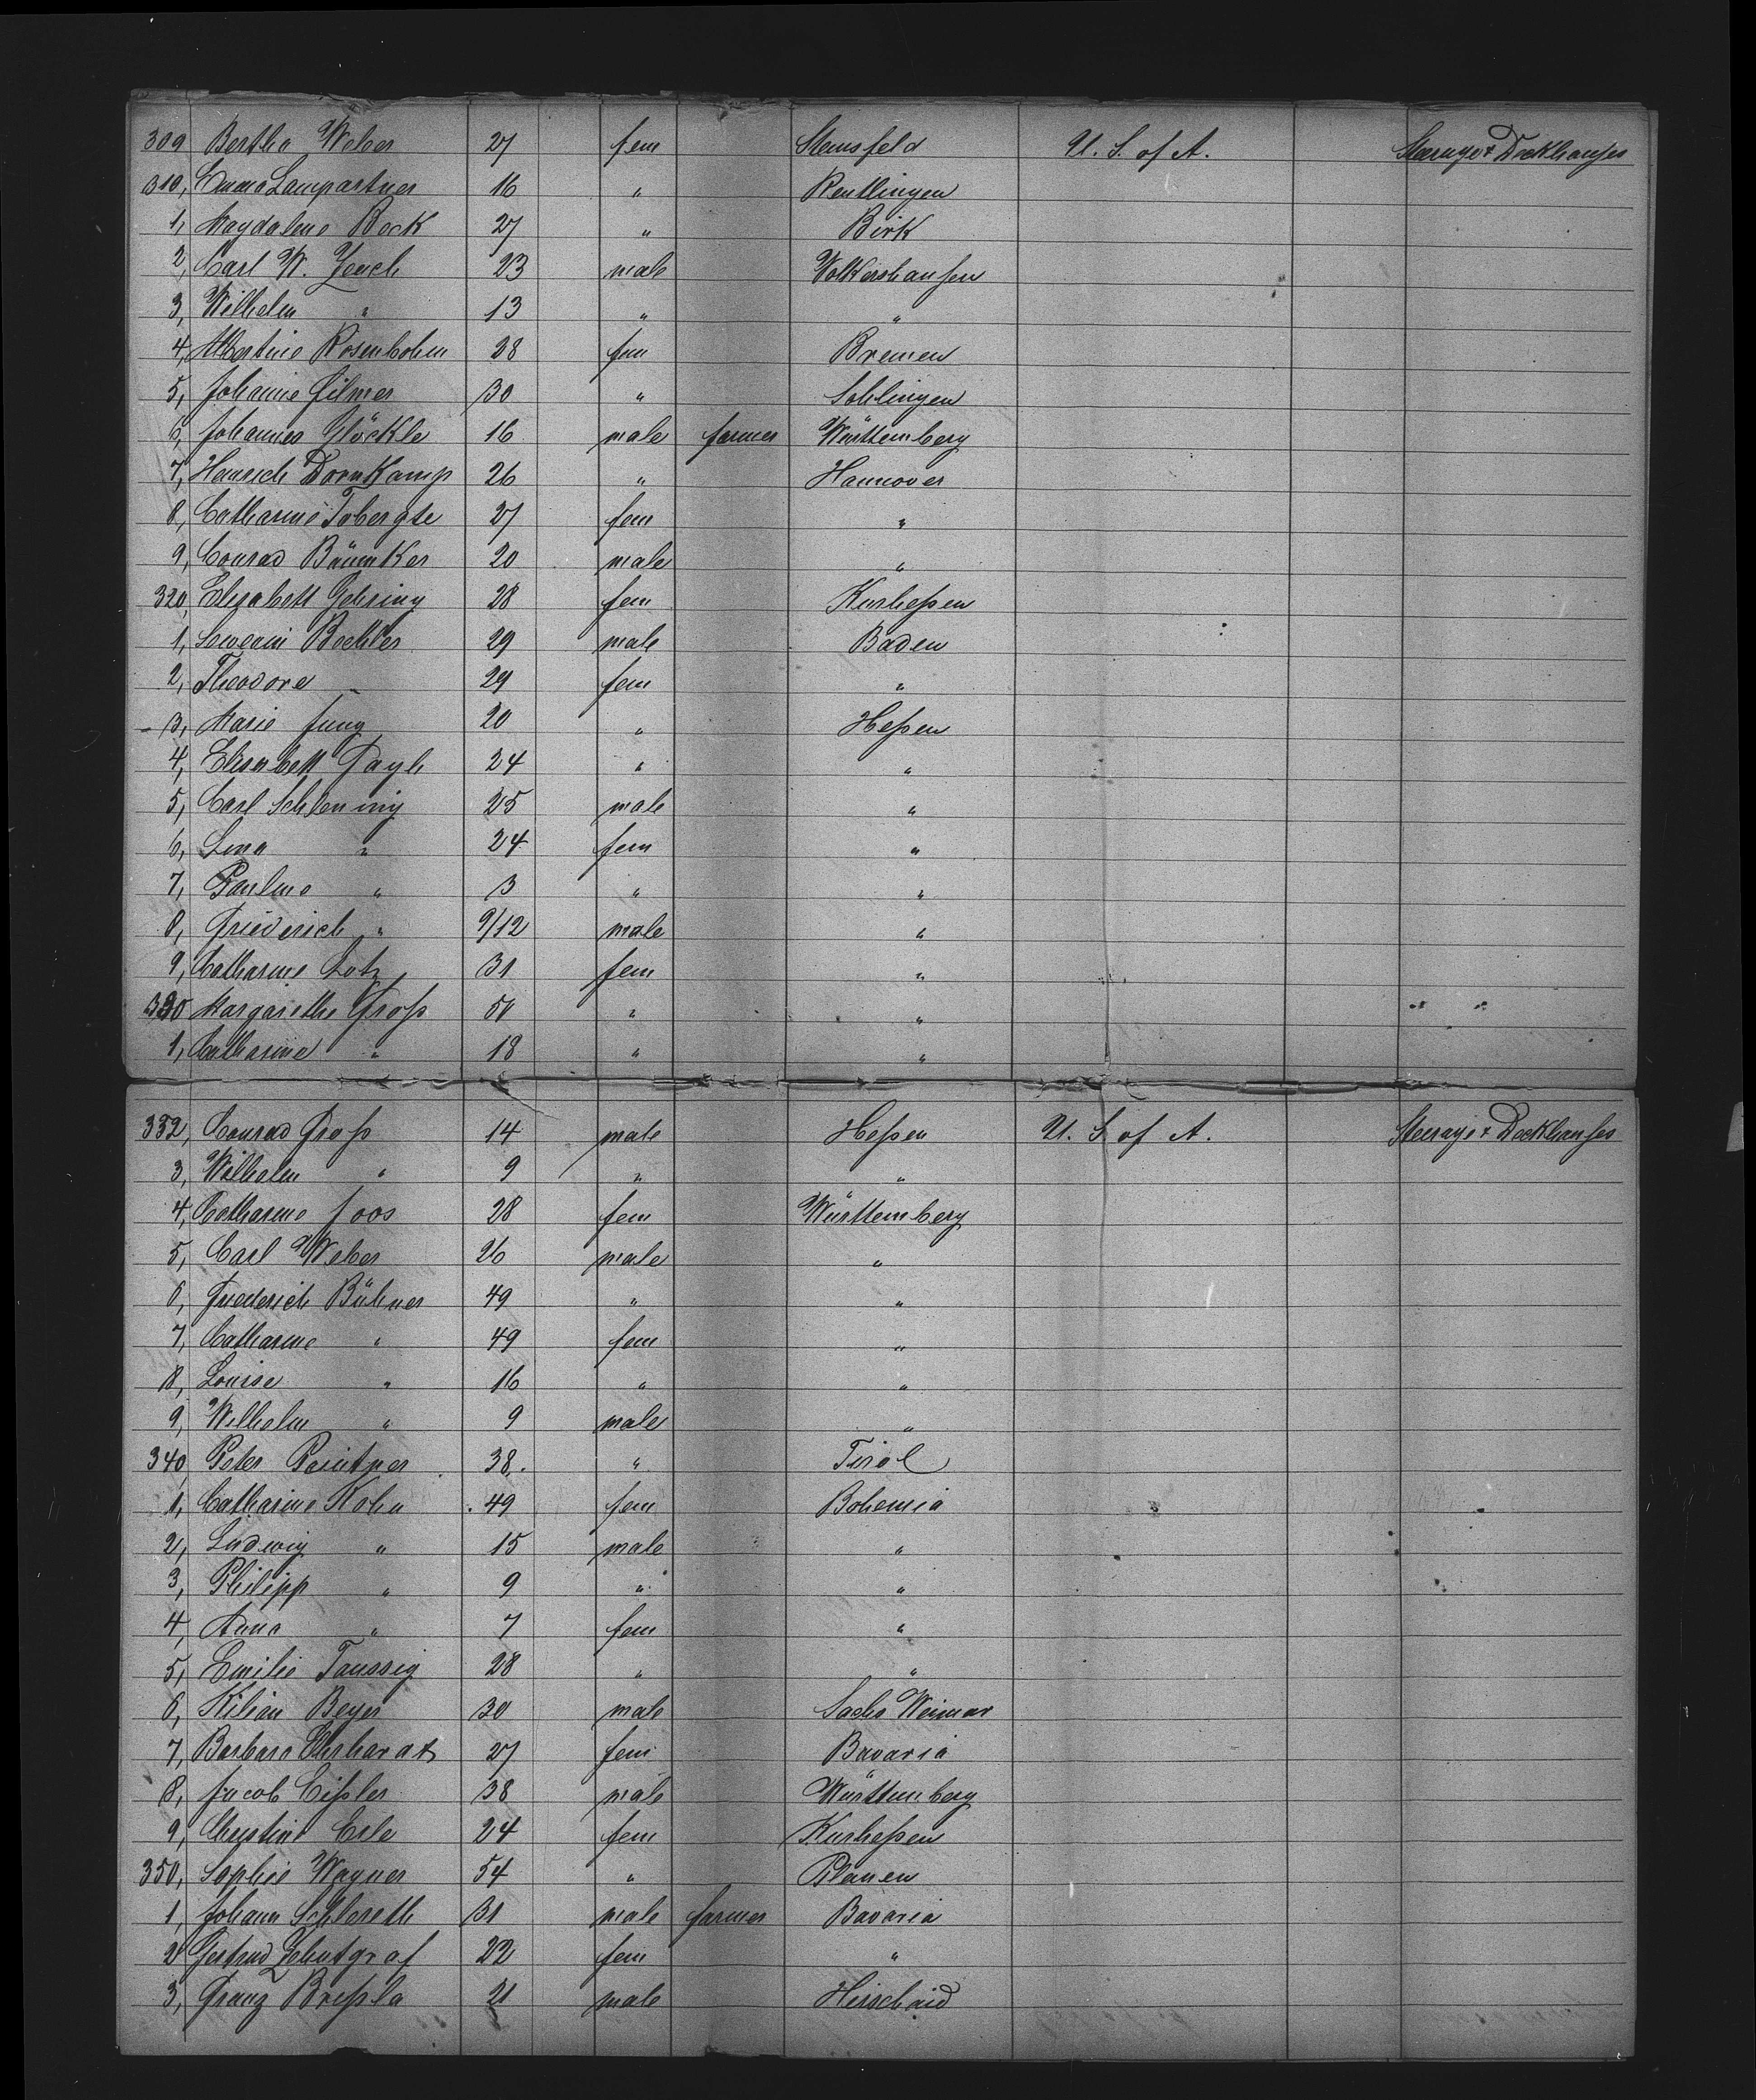 309 Bertha Weber 27 fem Stemsfeld U. S. of A. Steerage & Deckhauses
310, Emma Lampartner 16 " Reutlingen
1, Magdalene Beck 27 " Birk
2, Carl W. Zeuch 23 male Volkershausen
3, Wilhelm " 13 " "
4, Albertine Rosenbohm 38 fem Bremen
5, Johanne Filmer 30 " Sohlingen
6, Johannes Glöckle 16 male farmer Württemberg
7, Heinrich Dornkamp 26 " Hannover
8, Catharine Tobergte 27 fem "
9, Conrad Bäumker 20 male "
320, Elisabeth Gehring 28 fem Kurheßen
1, Severin Boehler 29 male Baden
2, Theodore 29 fem "
3, Marie Jung 20 " Heßen
4, Elisabeth Gayh 24 " "
5, Carl Schlenning 25 male "
6, Lina " 24 fem "
7, Pauline " 3 " "
8, Friederich " 9/12 male "
9, Catharine Lotz 31 fem "
330 Margarethe Groß 50 " " " "
1, Catharine " 18 " "
332, Conrad Groß 14 male Heßen U. S. of A. Steerage & Deckhauses
3, Wilhelm " 9 " "
4, Catharine Joos 28 fem Württemberg
5, Carl Weber 26 male "
6, Friederich Bühner 49 " "
7, Catharine " 49 fem "
8, Louise " 16 " "
9, Wilhelm " 9 male "
340, Peter Paintner 38. " Tirol
1, Catharine Kohn 49 fem Bohemia
2, Ludwig " 15 male "
3, Philipp " 9 " "
4, Anna " 7 fem "
5, Emilie Taussig 28 " "
6, Kilian Beyer 30 male Sachs Weimar
7, Barbara Erhardt 27 fem Bavaria
8, Jacob Eißler 38 male Württemberg
9, Christine Erle 24 fem Kurheßen
350, Sophie Wagner 54 " Planen
1, Johann Schlereth 31 male farmer Bavaria
2 Gertrud Zehntgraf 22 fem "
3, Franz Breßla 21 male Hirschaid